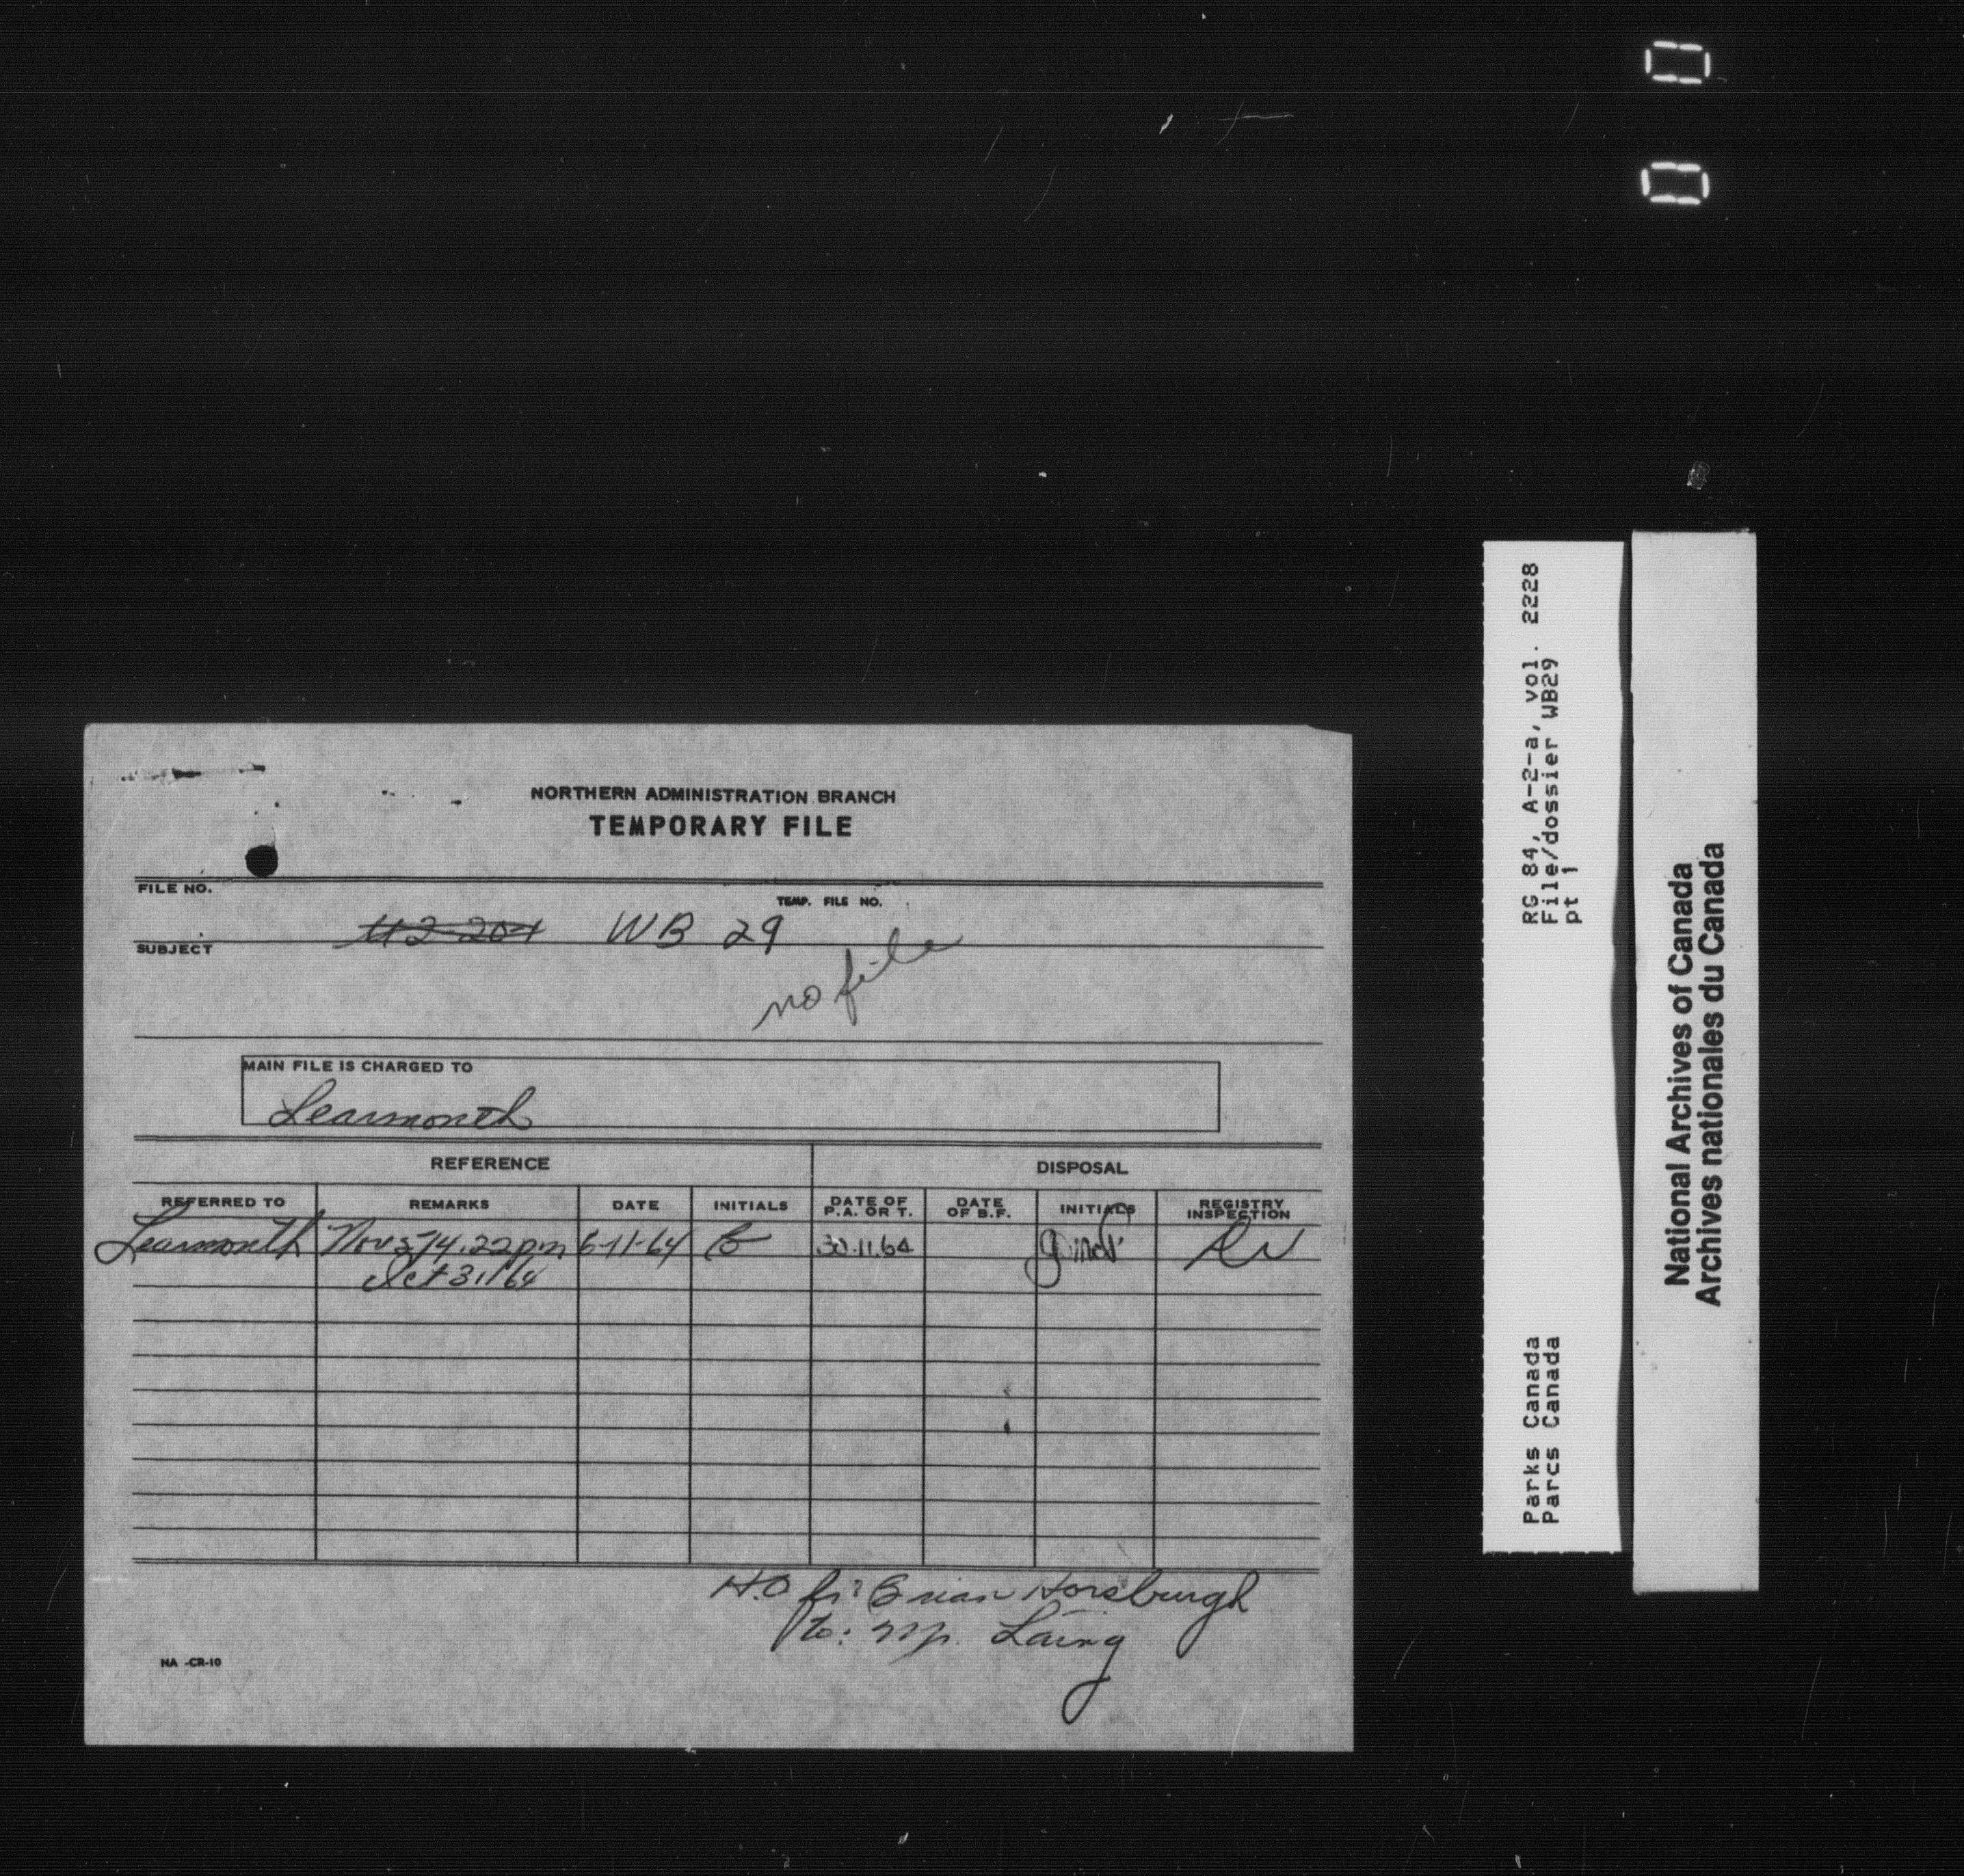 NORTHERN ADMINISTRATION BRANCH
TEMPORARY FILE
FILE NO.
TEMP. FILE NO.
WB 29
SUBJECT
no file
MAIN FILE IS CHARGED TO
Learmonth
REFERENCE
DISPOSAL
REFERRED TO REMARKS DATE INITIALS DATE OF P.A. OR T. DATE OF B.F. INITIALS REGISTRY INSPECTION
Learmonth 4.22 pm 6-11-64 30.11.64
Oct 31/64
Brian Horsburgh
to: Laing
NA -CR-10
RG 84, A-2-a, vol. 2228
File/dossier WB29
pt 1
Parks Canada
Parcs Canada
National Archives of Canada
Archives nationales du Canada
0
0